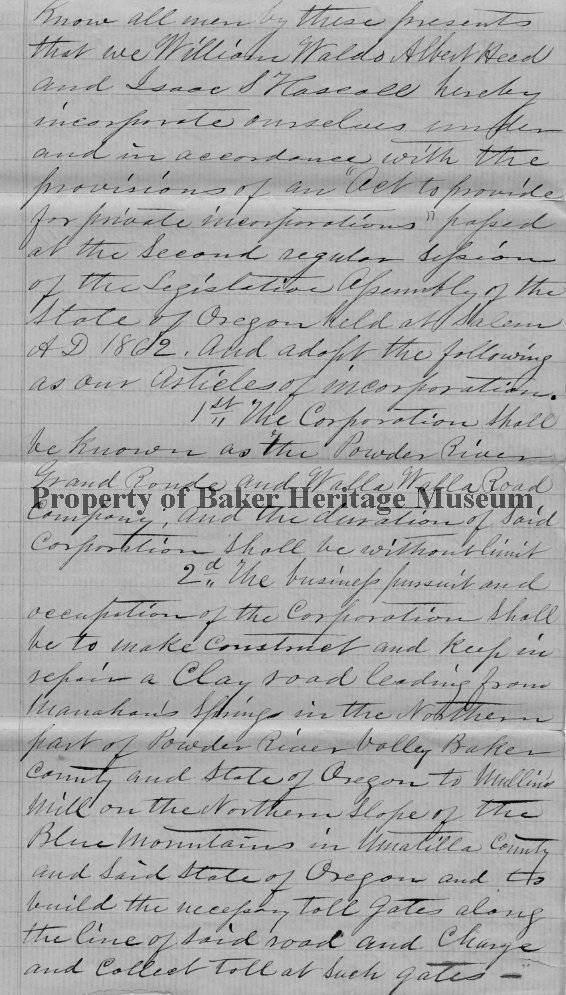 Know all men by these presents
that we William Waldo, Albert Heed
and Isaac S Hascall hereby
incorporate ourselves under
and in accordance with the
provisions of an "Act to provide
for private incorporations" passed
at the Second regular Session
of the Legislative Assembly of the
State of Oregon held at Salem
A D 1862. And adopt the following
as our Articles of incorporation.
1st,, The Corporation Shall
be known as "the Powder River
Grand Ronde and Walla Walla Road
Property of Baker Heritage Museum
Company, And the duration of Said
Corporation Shall be without limit
2d,, The business pursuit and
occupation of the Corporation Shall
be to make Construct and Keep in
repair a Clay road leading from
Manahan's Springs in the Northern
part of Powder River Valley Baker
County and State of Oregon to Mullins
Mill on the Northern Slope of the
Blue Mountains in Umatilla County
and Said State of Oregon and to
build the necessary toll gates along
the line of Said road and Charge
and Collect toll at Such gates —